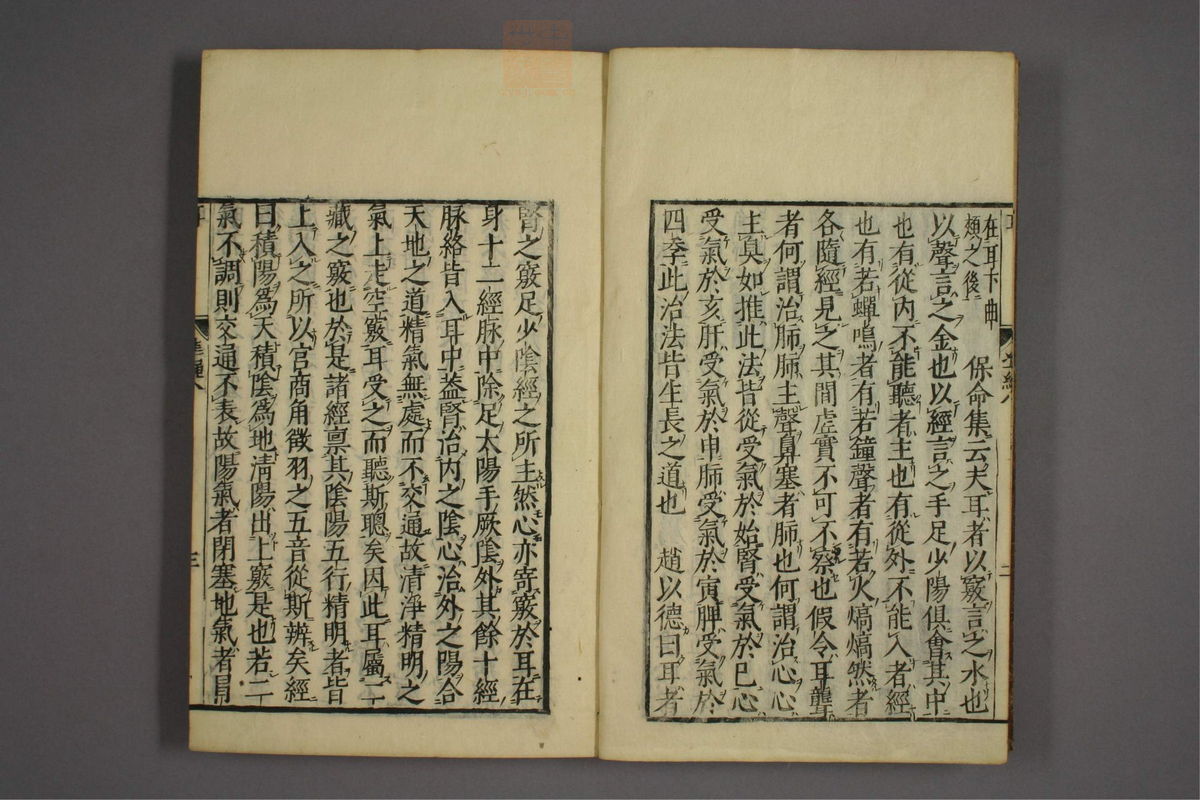 在耳下曲
頰之後
保命集云夫耳者以竅言之水也
以聲言之金也以經言之手足少陽俱會其中
也有從內不能聽者主也有從外不能入者經
也有若蟬鳴者有若鐘聲者有若火熇熇然者
各隨經見之其間虛實不可不察也假令耳聾
者何謂治肺肺主聲鼻塞者肺也何謂治心心
主臭如推此法皆從受氣於始腎受氣於巳心
受氣於亥肝受氣於申肺受氣於寅脾受氣於
四季此治法皆生長之道也 趙以德曰耳者
腎之竅足少陰經之所主然心亦寄竅於耳在
身十二經脉中除足太陽手厥陰外其餘十經
脉絡皆入耳中蓋腎治內之陰心治外之陽合
天地之道精氣無處而不交通故清淨精明之
氣上走空竅耳受之而聽斯聰矣因此耳屬二
藏之竅也於是諸經禀其陰陽五行精明者皆
上入之所以宮商角徵羽之五音從斯辨矣經
曰積陽爲天積陰爲地清陽出上竅是也若二
氣不調則交通不表故陽氣者閉塞地氣者冐
三